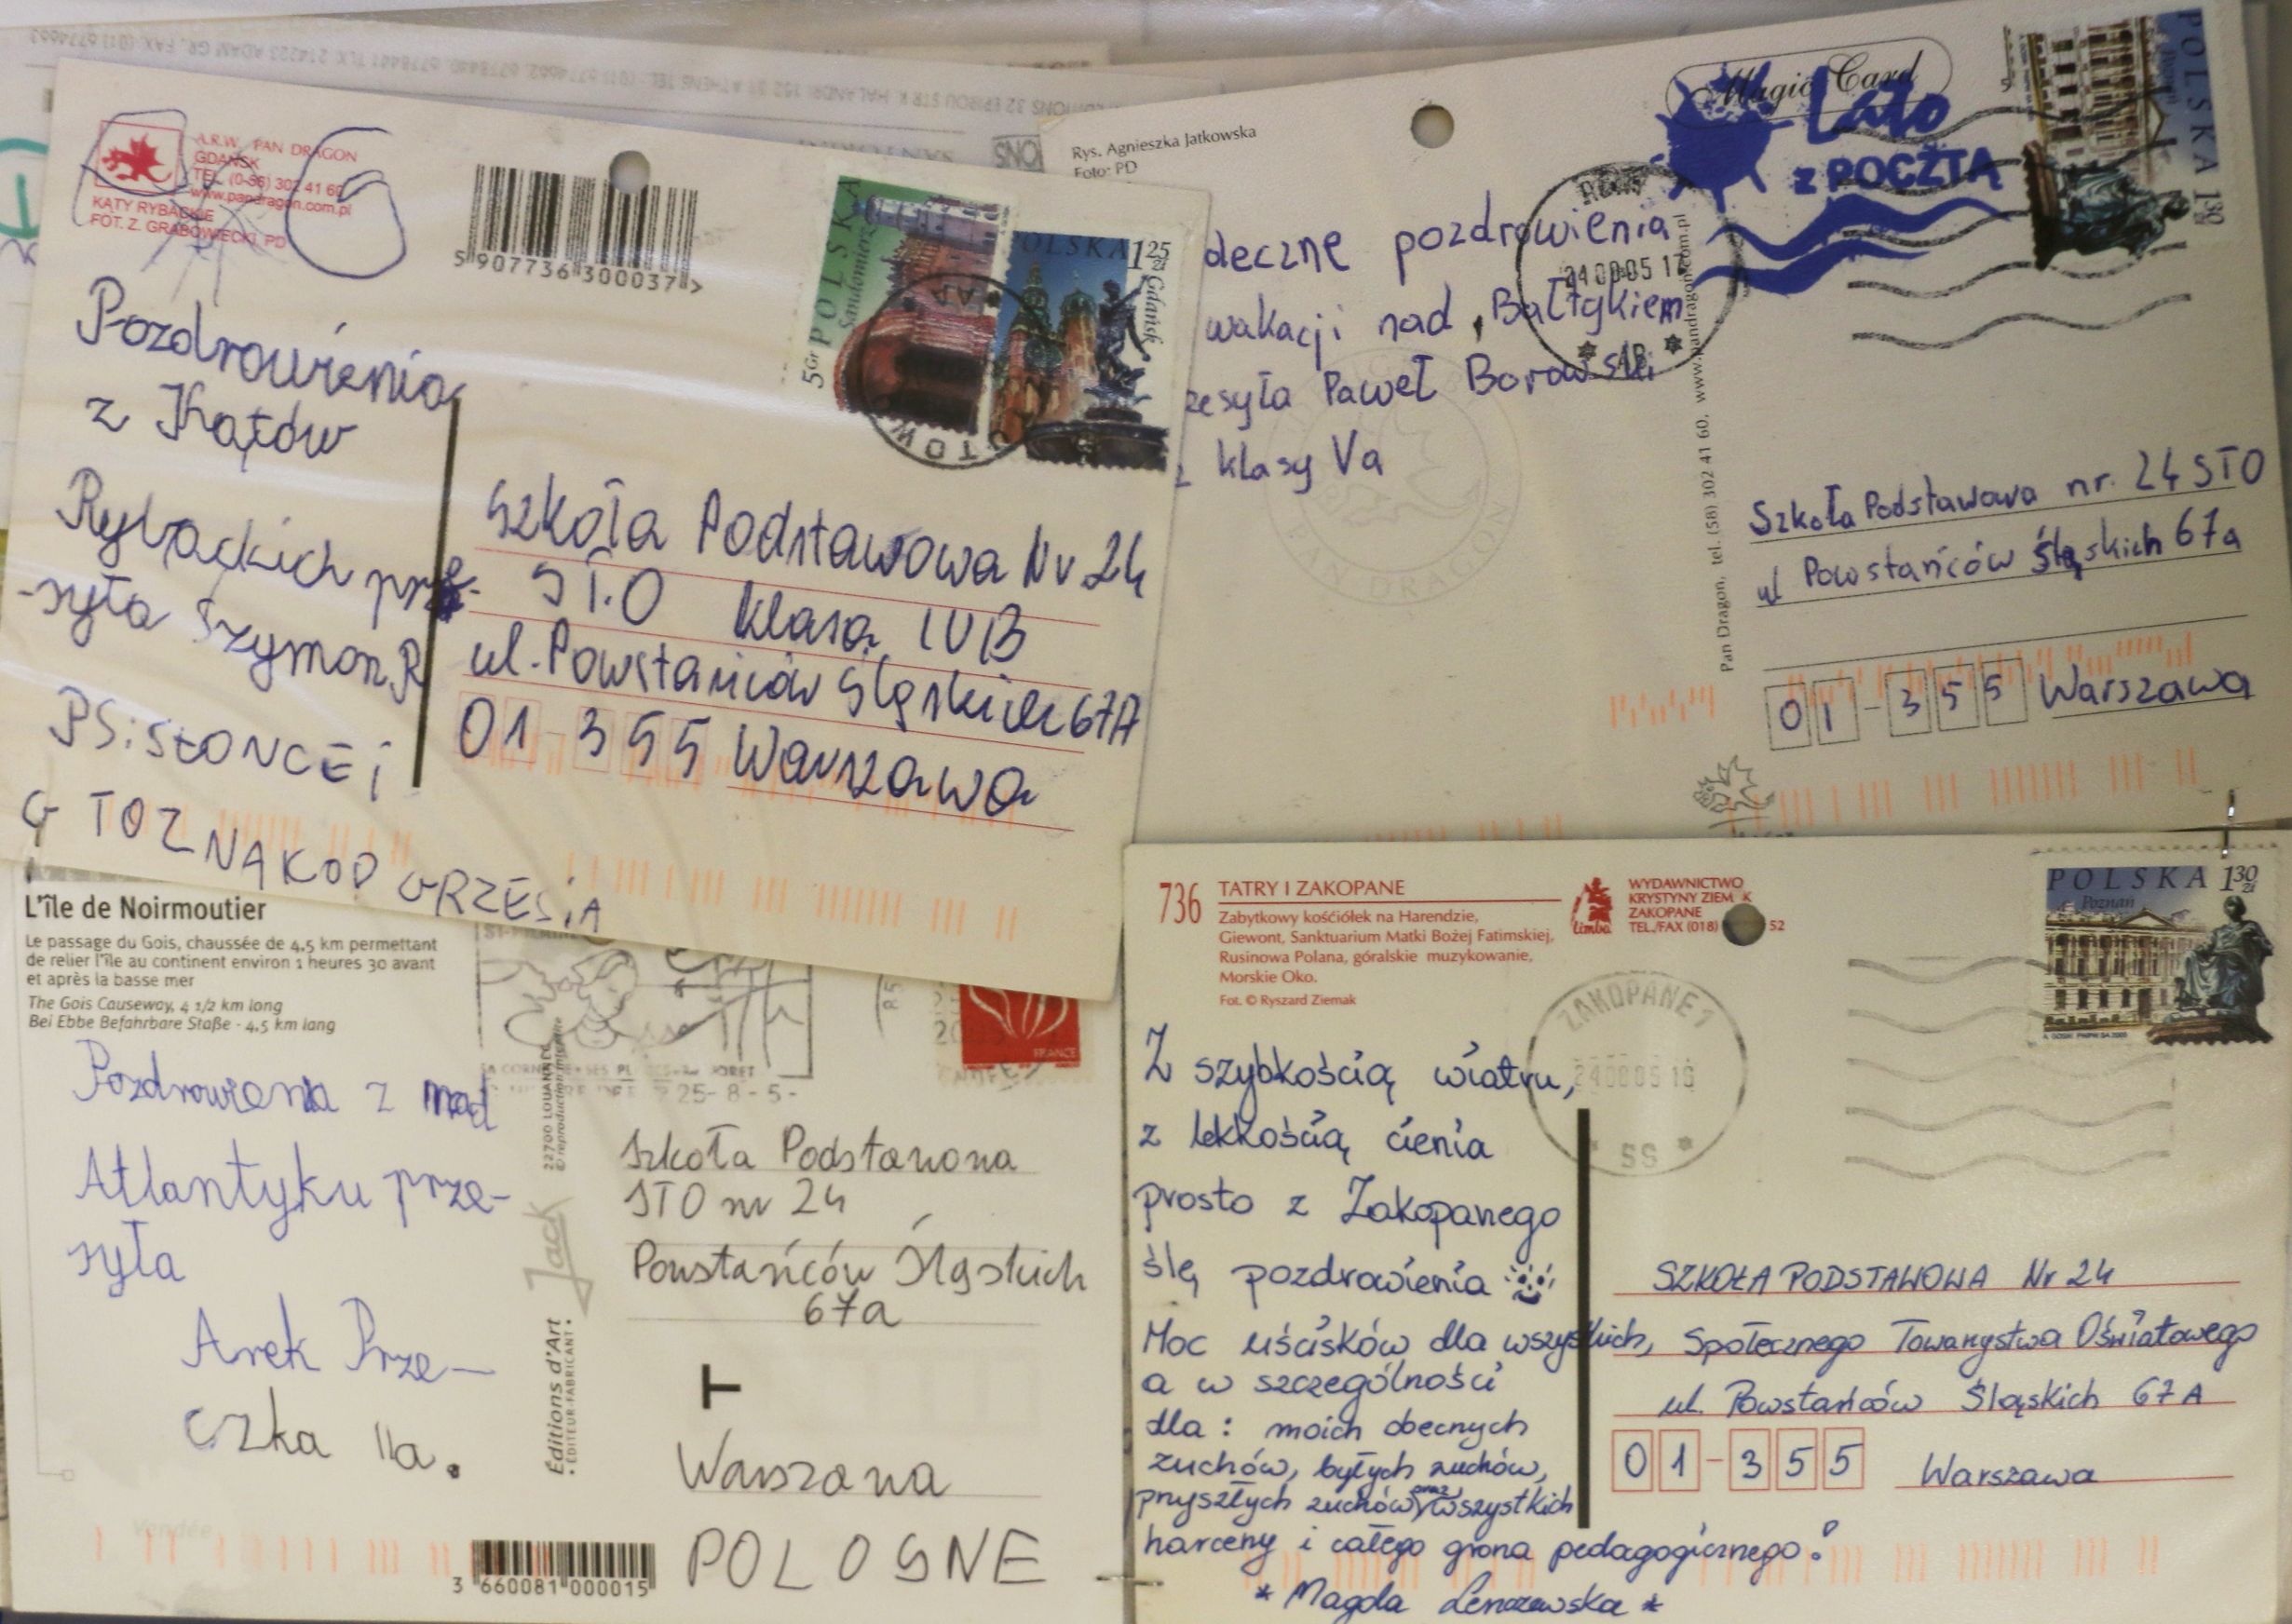 A.R.W. PAN DRAGON
GDAŃSK
TEL. (0-58) 302 41 60
www.pandragon.com.pl
KĄTY RYBACKIE
FOT. Z. GRABOWIECKI, PD
5 907736 300037 >
POLSKA
Sandomierz
5 gr
POLSKA 1 25 zł
Gdańsk
Pozdrowienia
z Kątów
Rybackich prze-
-syła Szymon.R
PS: SŁOŃCE i
G TO ZNAK OD GRZESiA
Szkoła Podstawowa Nr 24
STO klasa IVB
ul. Powstańców Śląskich 67A
01-355 Warszawa
Rys. Agnieszka Jatkowska
Foto: PD
Magic Card
Lato
z POCZTĄ
POLSKA 1 30 zł
deczne pozdrowienia
wakacji nad Bałtykiem
zesyła Paweł Borowski
z klasy Va
PAN DRAGON
Pan Dragon, tel. (58) 302 41 60, www.pandragon.com.pl
Szkoła Podstawowa nr. 24 STO
ul Powstańców Śląskich 67a
01-355 Warszawa
L'île de Noirmoutier
Le passage du Gois, chaussée de 4,5 km permettant
de relier l'île au continent environ 1 heures 30 avant
et après la basse mer
The Gois Causeway, 4 1/2 km long
Bei Ebbe Befahrbare Staße - 4,5 km lang
25-8-5-
FRANCE
Pozdrowienia z nad
Atlantyku prze-
syła
Arek Prze-
czka IIa.
22700 LOUANNEC
© reproduction interdite
Jack
Éditions d'Art
• ÉDITEUR-FABRICANT •
Szkoła Podstawowa
STO nr 24
Powstańców Śląskich
67a
T
Warszawa
POLOGNE
Vendée
3 660081 000015
736 TATRY I ZAKOPANE
Zabytkowy kośćiółek na Harendzie,
Giewont, Sanktuarium Matki Bożej Fatimskiej,
Rusinowa Polana, góralskie muzykowanie,
Morskie Oko.
Fot. © Ryszard Ziemak
Limba
WYDAWNICTWO
KRYSTYNY ZIEM K
ZAKOPANE
TEL./FAX (018) 52
ZAKOPANE 1
240805 16
* SG *
POLSKA 1 30 zł
Poznań
Z szybkością wiatru,
z lekkością cienia
prosto z Zakopanego
ślę pozdrowienia
Moc uścisków dla wszystkich,
a w szczególności
dla: moich obecnych
zuchów, byłych zuchów,
przyszłych zuchów oraz wszystkich
harcerzy i całego grona pedagogicznego!
* Magda Lenczewska *
SZKOŁA PODSTAWOWA Nr 24
Społecznego Towarzystwa Oświatowego
ul. Powstańców Śląskich 67A
01-355 Warszawa